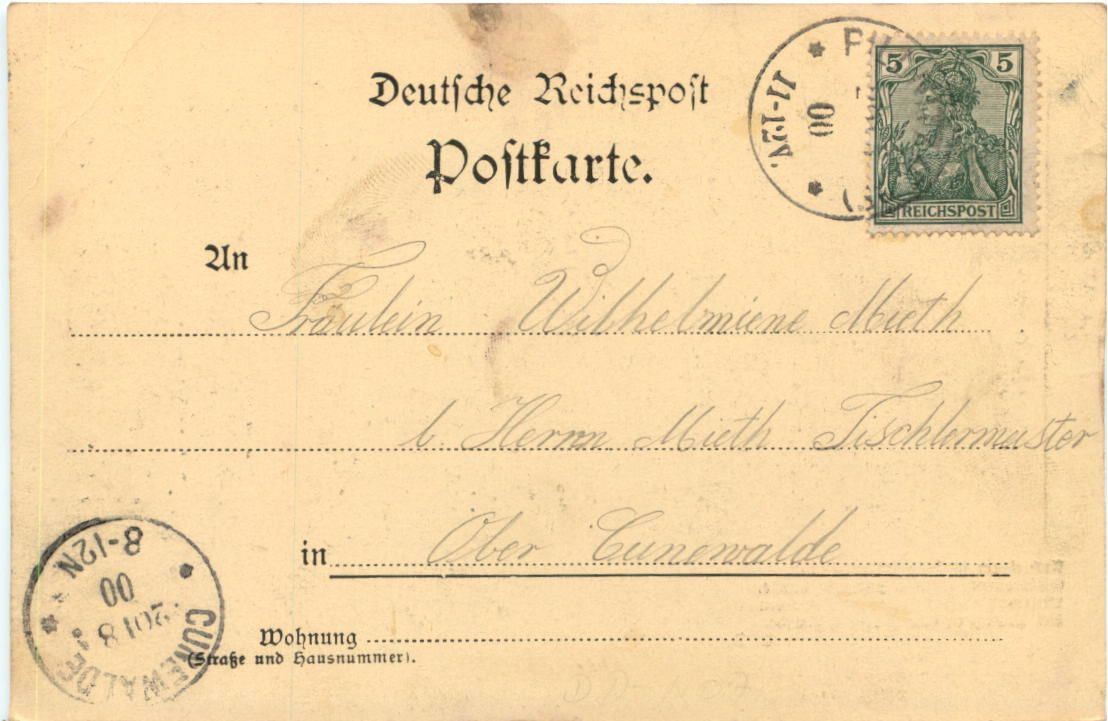 Deutsche Reichspost
Postkarte.
11-12V.
00
5 5
REICHSPOST
An
Fräulein Wilhelmiene Mieth
b. Herrn Mieth Tischlermeister
in Ober Cunewalde
Wohnung
(Straße und Hausnummer).
CUNEWALDE
8
00
8-12N